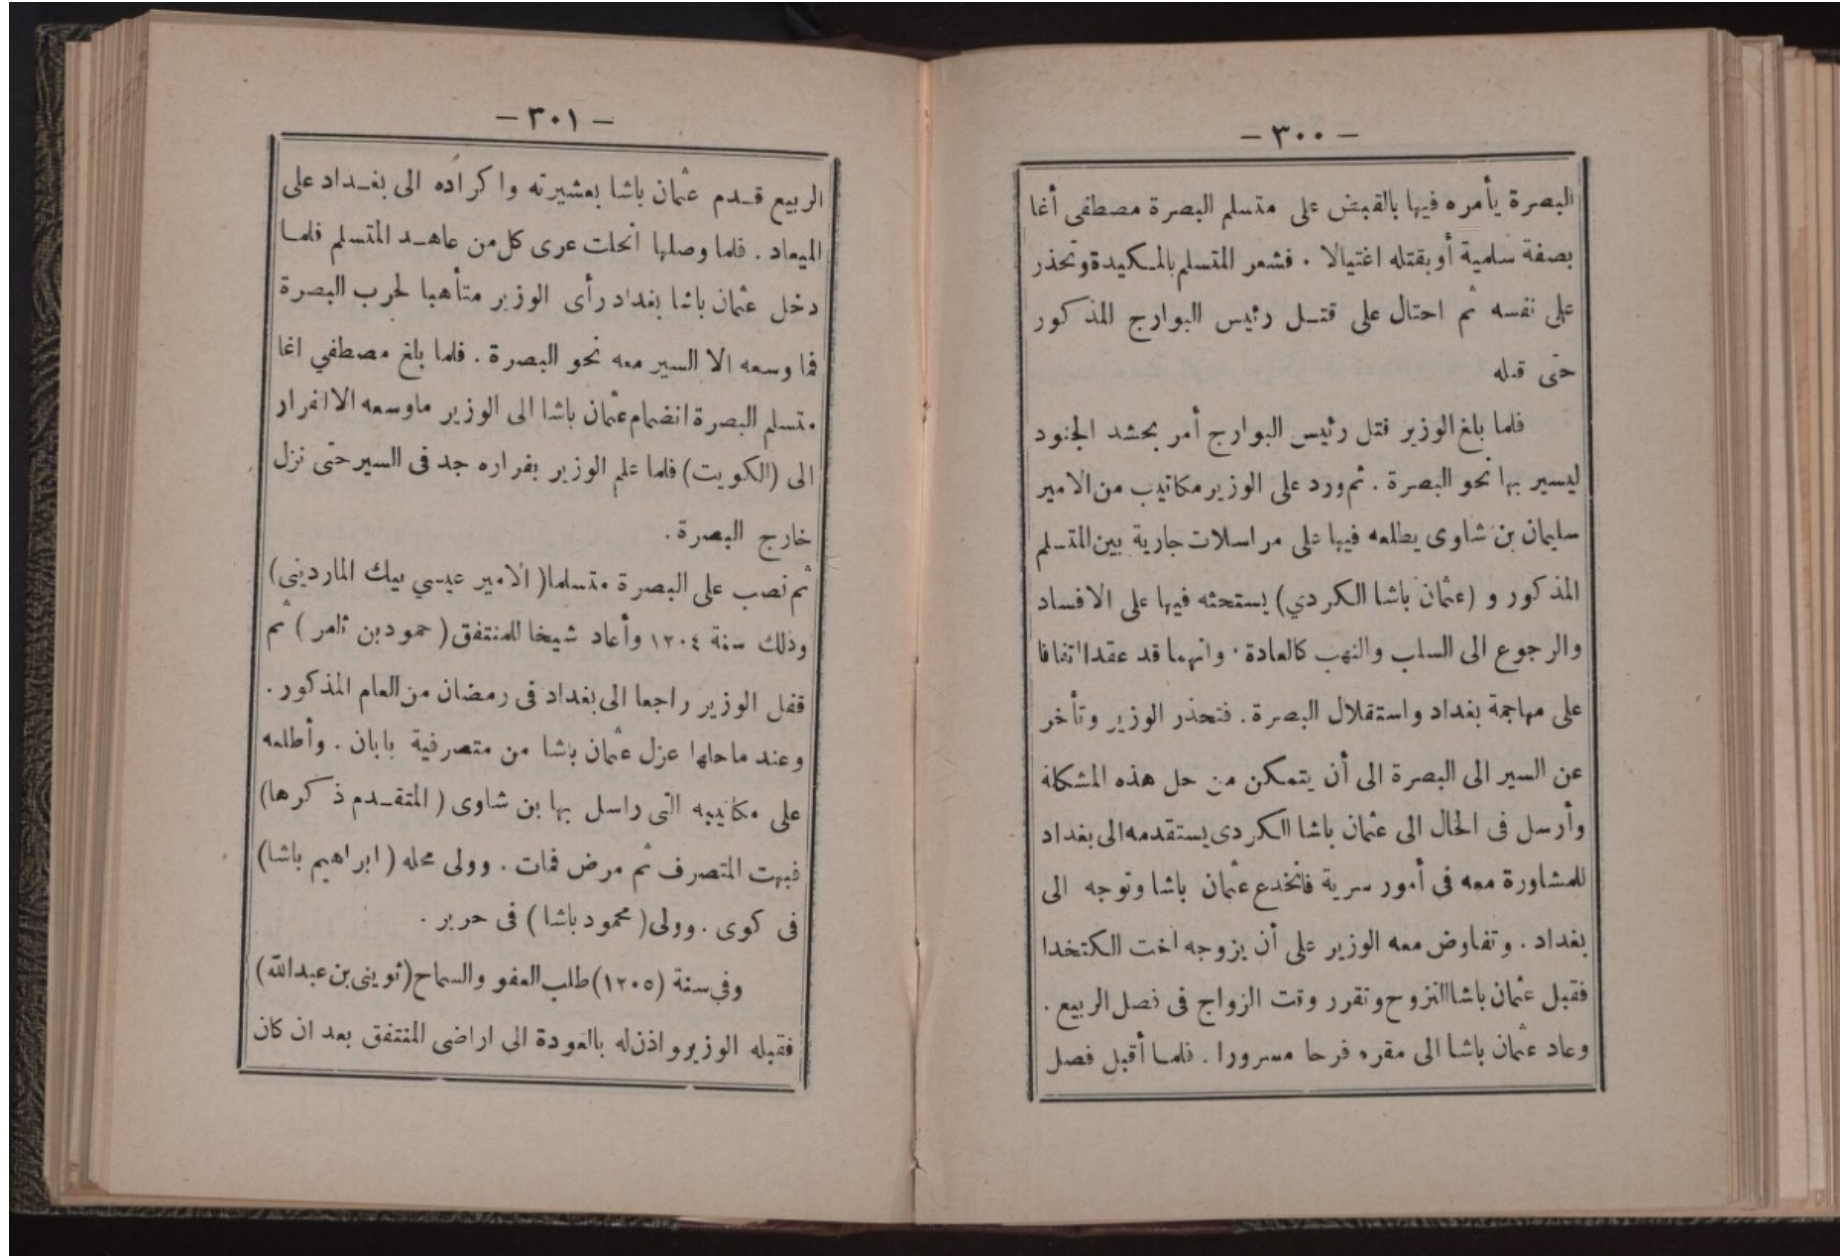 — ٣٠٠ —
البصرة يأمره فيها بالقبض على متسلم البصرة مصطفى أغا
بصفة سلمية أو بقتله اغتيالا . فشعر المتسلم بالمكيدة وتحذر
على نفسه ثم احتال على قتل رئيس البوارج المذكور
حتى قتله
فلما بلغ الوزير قتل رئيس البوارج أمر بحشد الجنود
ليسير بها نحو البصرة . ثم ورد على الوزير مكاتيب من الامير
سليمان بن شاوى يطلعه فيها على مراسلات جارية بين المتسلم
المذكور و (عثمان باشا الكردي) يستحثه فيها على الافساد
والرجوع الى السلب والنهب كالعادة . وانهما قد عقدا اتفاقا
على مهاجمة بغداد واستقلال البصرة . فتحذر الوزير وتأخر
عن السير الى البصرة الى أن يتمكن من حل هذه المشكلة
وأرسل فى الحال الى عثمان باشا الكردى يستقدمه الى بغداد
للمشاورة معه فى أمور سرية فانخدع عثمان باشا وتوجه الى
بغداد . وتفاوض معه الوزير على أن يزوجه اخت الكتخدا
فقبل عثمان باشا التزوج وتقرر وقت الزواج فى فصل الربيع .
وعاد عثمان باشا الى مقره فرحا مسرورا . فلما أقبل فصل
— ٣٠١ —
الربيع قدم عثمان باشا بعشيرته واكراده الى بغداد على
الميعاد . فلما وصلها انحلت عرى كل من عاهد المتسلم فلما
دخل عثمان باشا بغداد رأى الوزير متأهبا لحرب البصرة
فما وسعه الا السير معه نحو البصرة . فلما بلغ مصطفي اغا
متسلم البصرة انضمام عثمان باشا الى الوزير ماوسعه الا الفرار
الى (الكويت) فلما علم الوزير بفراره جد فى السير حتى نزل
خارج البصرة .
ثم نصب على البصرة متسلما (الامير عيسي بيك الماردينى)
وذلك سنة ١٢٠٤ وأعاد شيخا للمنتفق (حمود بن ثامر) ثم
قفل الوزير راجعا الى بغداد فى رمضان من العام المذكور .
وعند ما حلها عزل عثمان باشا من متصرفية بابان . وأطلعه
على مكاتيبه التى راسل بها بن شاوى (المتقدم ذكرها)
فبهت المتصرف ثم مرض فمات . وولى محله (ابراهيم باشا)
فى كوى . وولى (محمود باشا) فى حرير .
وفي سنة (١٢٠٥) طلب العفو والسماح (ثوينى بن عبدالله)
فقبله الوزير واذن له بالعودة الى اراضى المنتفق بعد ان كان